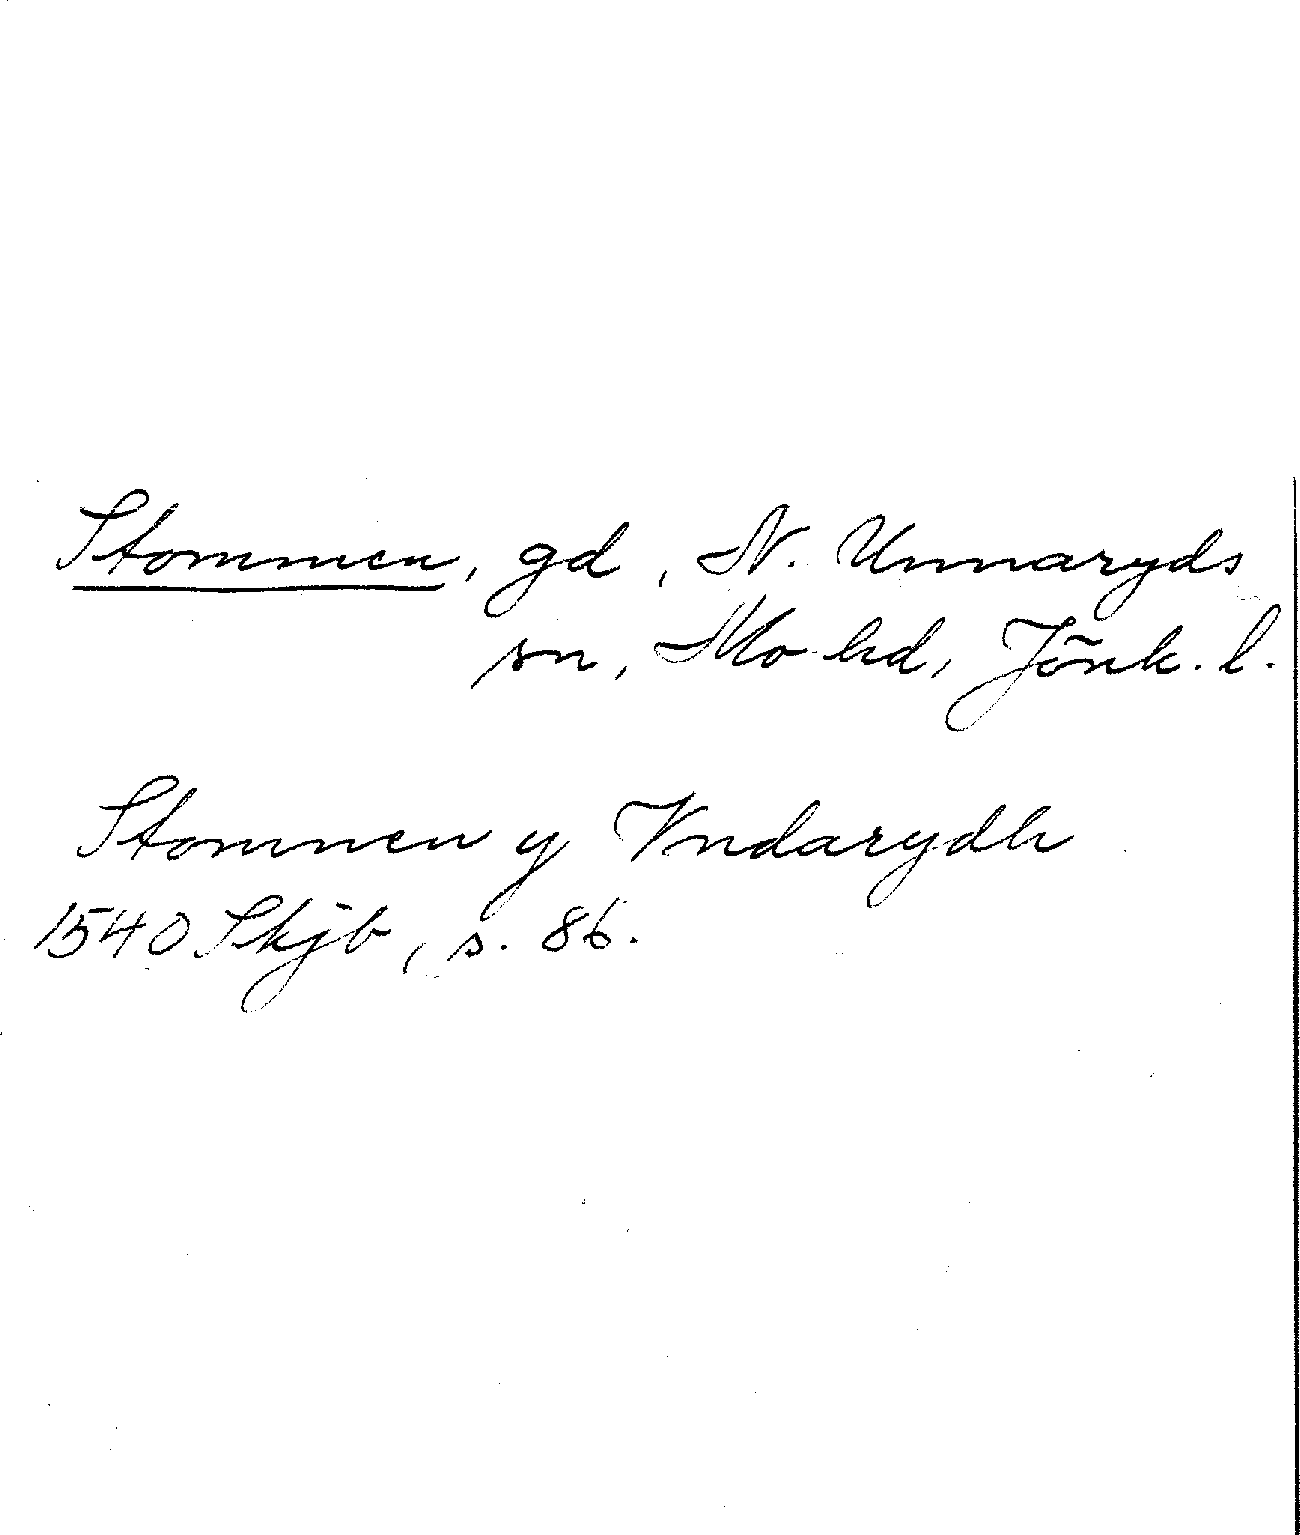 Stommen, gd, N. Unnaryds
sn, Mo hd, Jönk. l.
Stommen y Vndarydh
1540 Skjb, s. 86.